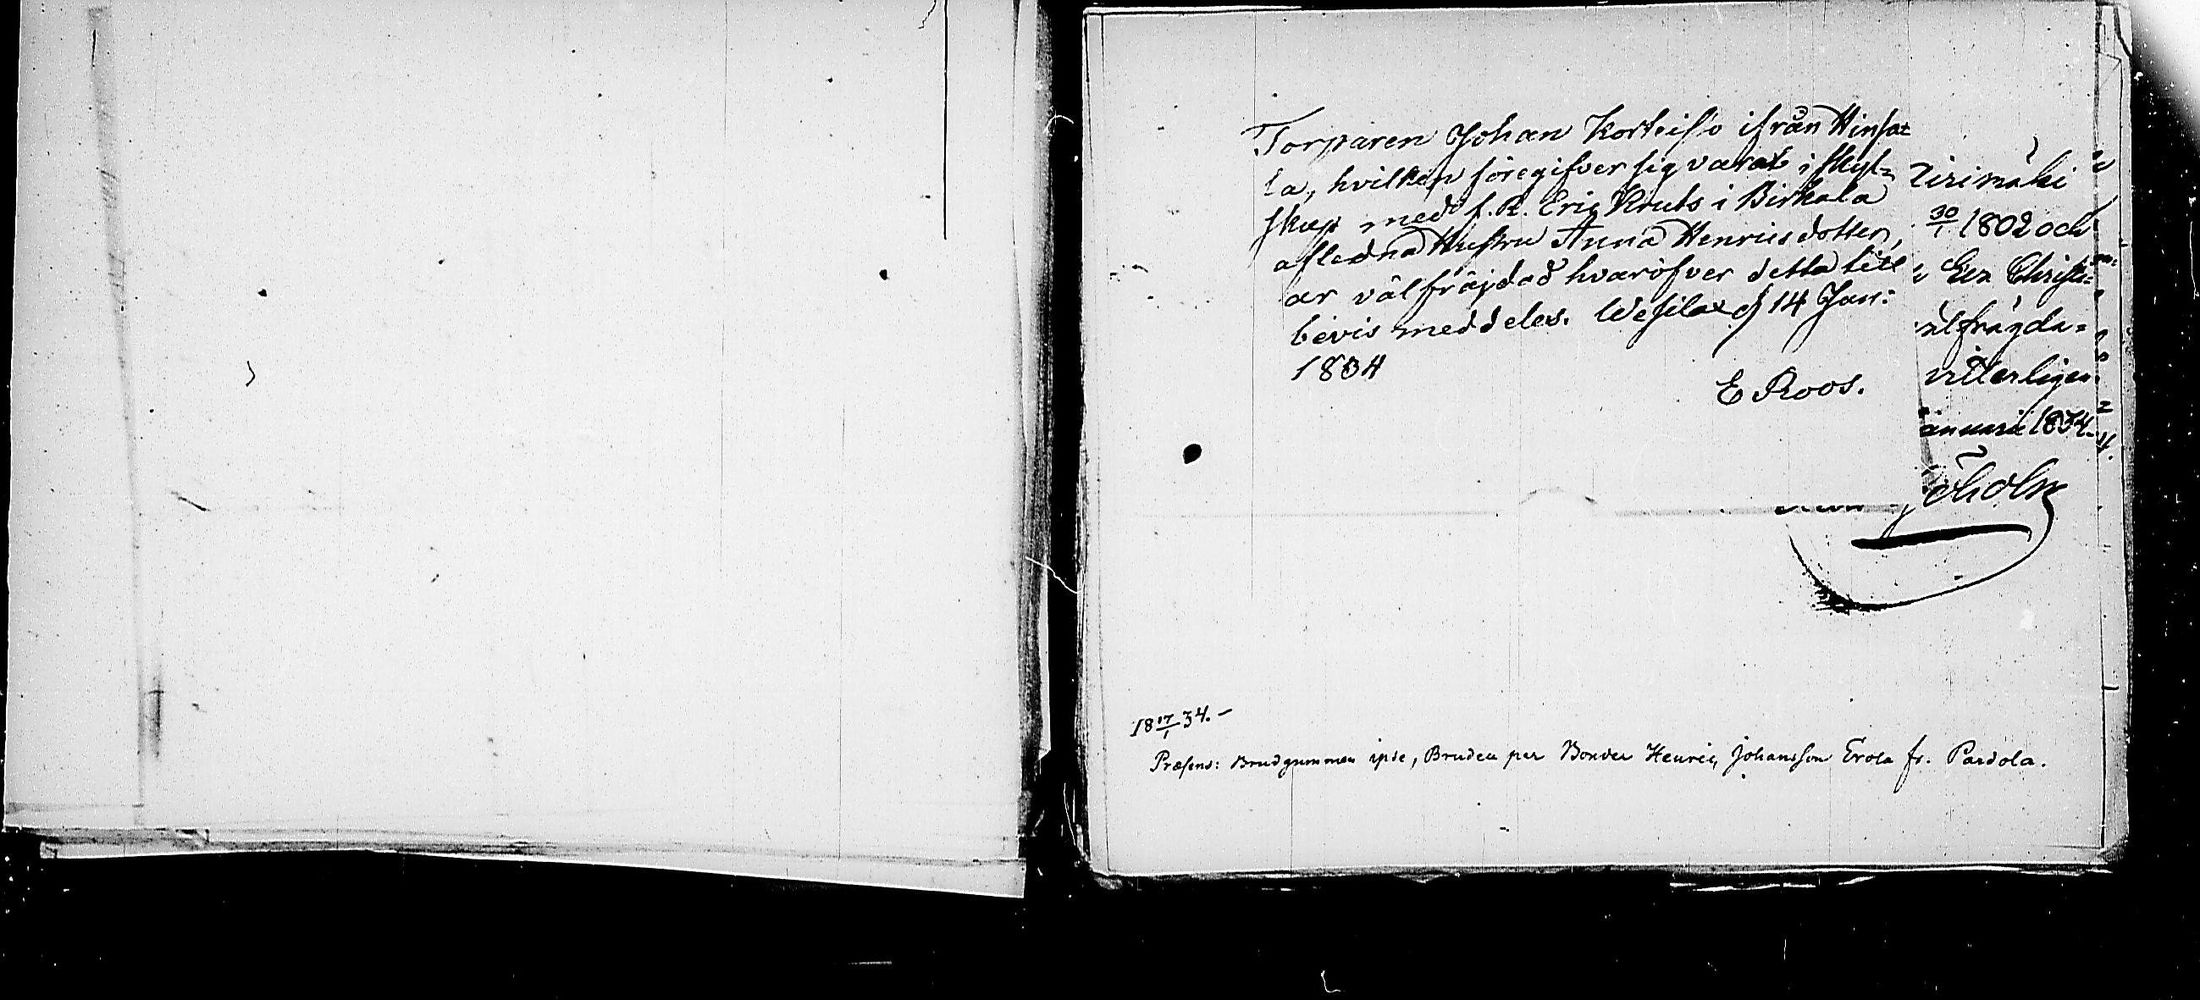 Torparen Johan Korteiso ifrån Hinsa=
la, hvilken föregifver sig varat i skyl=
skap med f. R. Eric Kruts i Birkala
aflednaHustru Anna Henricsdotter,
är välfräjdad hvaröfver detta till
bevis meddeles. Wesilax d 14 Jan:
1834
E Roos.
rimäki
30/1 1802 och
Ger Christe=
älfrägda=
vitterligen
anuarii 1834.
öholm
18 17/1 34.-
Præsens: Brudgummen ipse, Bruden per Bonden Henric Johansson Erola fr. Pardola.